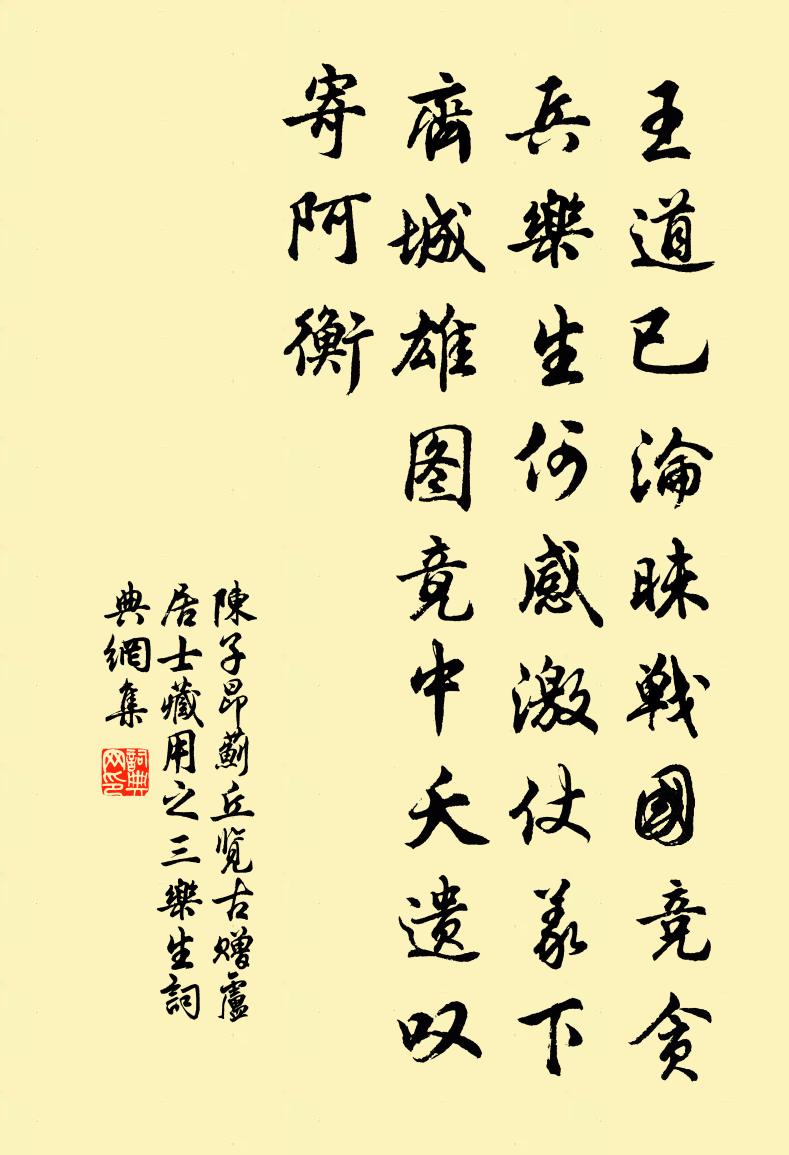 王道已淪昧戰國竞贪
兵樂生何感激仗義下
齊城雄图竟中夭遗叹
寄阿衡
陳子昂薊丘览古赠盧
居士藏用之三樂生詞
典網集
詞典
网印